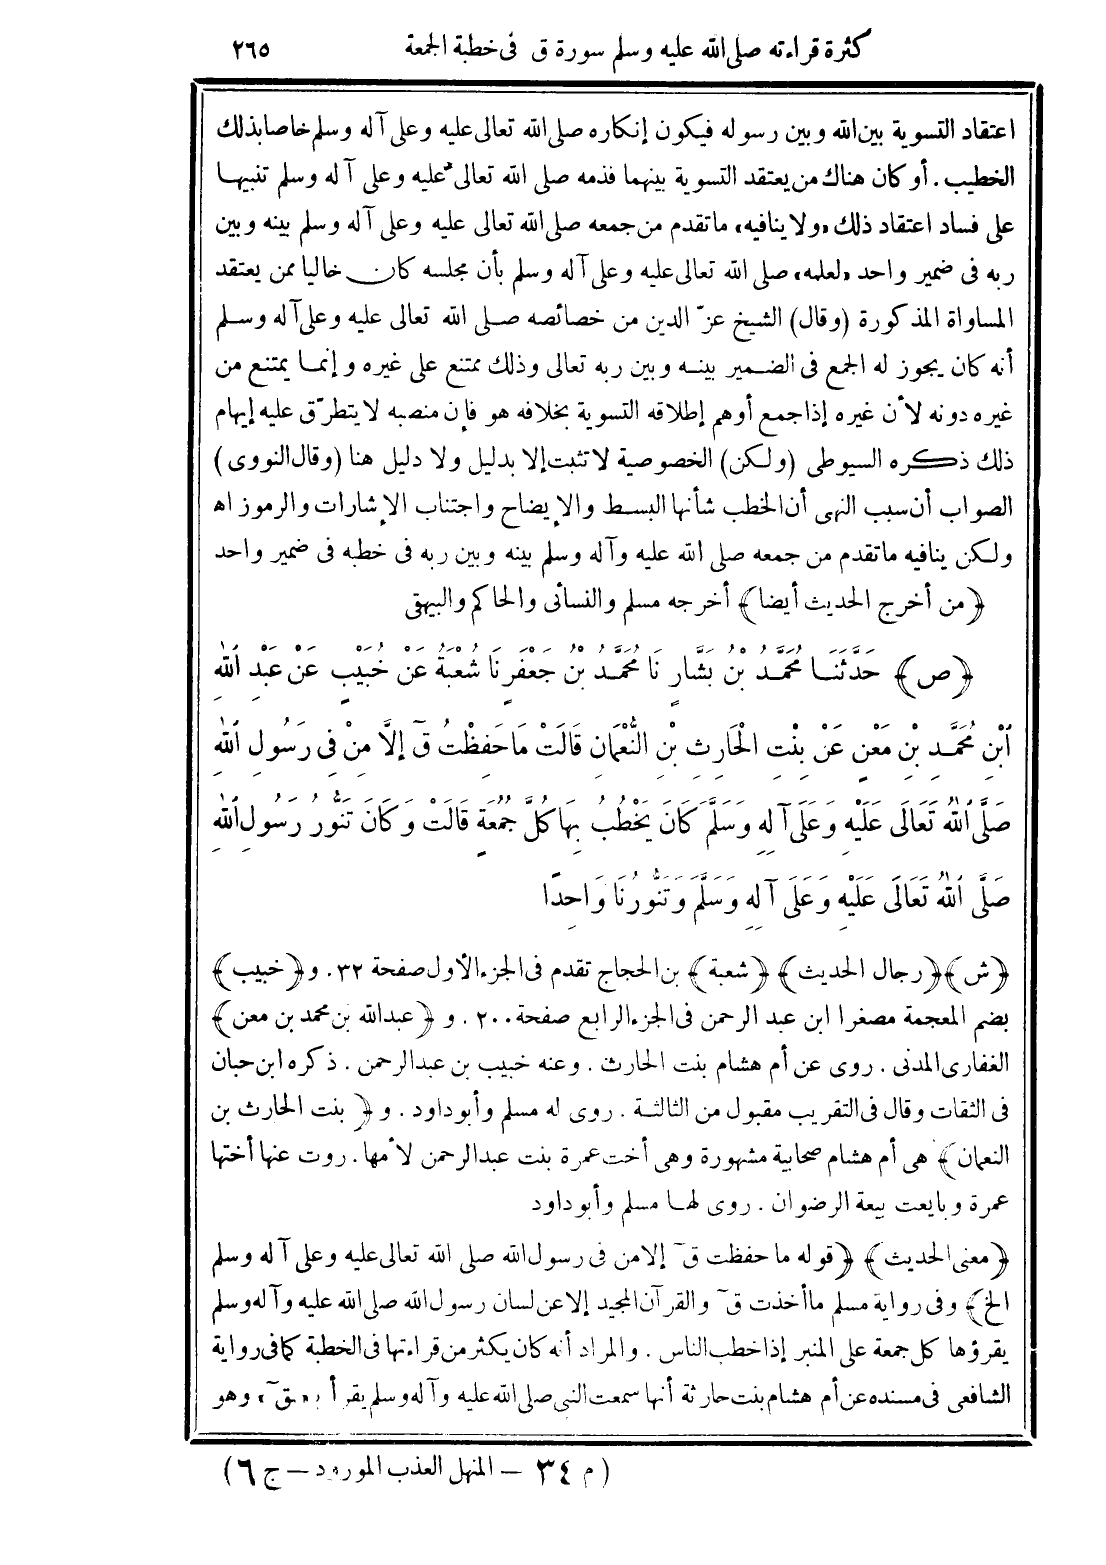 كثرة قراءته صلى الله عليه وسلم سورة ق في خطبة الجمعة ٢٦٥
اعتقاد التسوية بين الله وبين رسوله فيكون إنكاره صلى الله تعالى عليه وعلى آله وسلم خاصا بذلك
الخطيب . أو كان هناك من يعتقد التسوية بينهما فذمه صلى الله تعالى عليه وعلى آله وسلم تنبيها
على فساد اعتقاد ذلك «ولا ينافيه» ما تقدم من جمعه صلى الله تعالى عليه وعلى آله وسلم بينه وبين
ربه فى ضمير واحد «لعلمه» صلى الله تعالى عليه وعلى آله وسلم بأن مجلسه كان خاليا ممن يعتقد
المساواة المذكورة (وقال) الشيخ عزّ الدين من خصائصه صلى الله تعالى عليه وعلى آله وسلم
أنه كان يجوز له الجمع فى الضمير بينه وبين ربه تعالى وذلك ممتنع على غيره وإنما يمتنع من
غيره دونه لأن غيره إذا جمع أوهم إطلاقه التسوية بخلافه هو فإن منصبه لا يتطرّق عليه إيهام
ذلك ذكره السيوطى (ولكن) الخصوصية لا تثبت إلا بدليل ولا دليل هنا (وقال النووى)
الصواب أن سبب النهى أن الخطب شأنها البسط والإيضاح واجتناب الإشارات والرموز اه
ولكن ينافيه ما تقدم من جمعه صلى الله عليه وآله وسلم بينه وبين ربه فى خطبه فى ضمير واحد
﴿من أخرج الحديث أيضا﴾ أخرجه مسلم والنسائى والحاكم والبيهقى
﴿ص﴾ حَدَّثَنَا مُحَمَّدُ بْنُ بَشَّارٍ نَا مُحَمَّدُ بْنُ جَعْفَرٍ نَا شُعْبَةُ عَنْ خُبَيْبٍ عَنْ عَبْدِ اللهِ
ابْنِ مُحَمَّدِ بْنِ مَعْنٍ عَنْ بِنْتِ الْحَارِثِ بْنِ النُّعْمَانِ قَالَتْ مَا حَفِظْتُ قٓ إِلَّا مِنْ فِى رَسُولِ اللهِ
صَلَّى اللهُ تَعَالَى عَلَيْهِ وَعَلَى آلِهِ وَسَلَّمَ كَانَ يَخْطُبُ بِهَا كُلَّ جُمُعَةٍ قَالَتْ وَكَانَ تَنُّورُ رَسُولِ اللهِ
صَلَّى اللهُ تَعَالَى عَلَيْهِ وَعَلَى آلِهِ وَسَلَّمَ وَتَنُّورُنَا وَاحِدًا
﴿ش﴾ ﴿رجال الحديث﴾ ﴿شعبة﴾ بن الحجاج تقدم فى الجزء الأول صفحة ٣٢. و ﴿خبيب﴾
بضم المعجمة مصغرا ابن عبد الرحمن فى الجزء الرابع صفحة ٢٠٠ . و ﴿عبد الله بن محمد بن معن﴾
الغفارى المدنى . روى عن أم هشام بنت الحارث . وعنه خبيب بن عبد الرحمن . ذكره ابن حبان
فى الثقات وقال فى التقريب مقبول من الثالثة . روى له مسلم وأبو داود . و ﴿بنت الحارث بن
النعمان﴾ هى أم هشام صحابية مشهورة وهى أخت عمرة بنت عبد الرحمن لأمها . روت عنها أختها
عمرة وبايعت بيعة الرضوان . روى لها مسلم وأبو داود
﴿معنى الحديث﴾ ﴿قوله ما حفظت قٓ إلا من فى رسول الله صلى الله تعالى عليه وعلى آله وسلم
الخ﴾ وفى رواية مسلم ما أخذت قٓ والقرآن المجيد إلا عن لسان رسول الله صلى الله عليه وآله وسلم
يقرؤها كل جمعة على المنبر إذا خطب الناس . والمراد أنه كان يكثر من قراءتها فى الخطبة كما فى رواية
الشافعى فى مسنده عن أم هشام بنت حارثة أنها سمعت النبى صلى الله عليه وآله وسلم يقرأ بـ «قٓ» وهو
(م ٣٤ – المنهل العذب المورود – ج ٦)